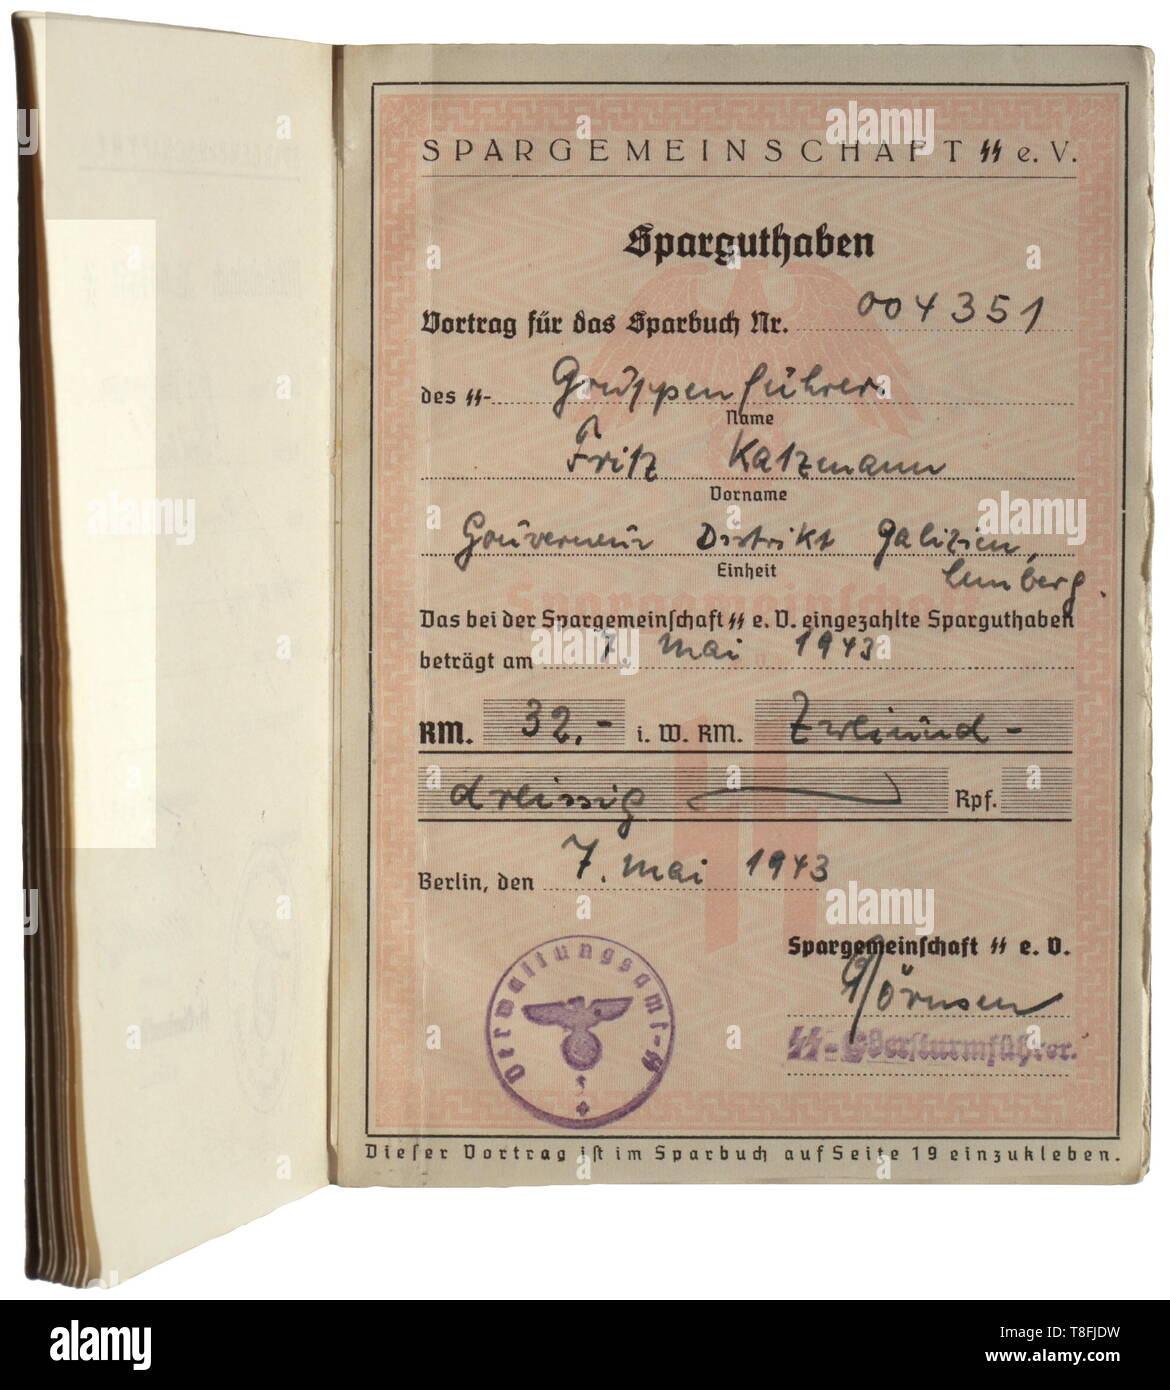 SPARGEMEINSCHAFT SS e. V.
Sparguthaben
Vortrag für das Sparbuch Nr. 004351
des SS- Gruppenführer.
Name
Fritz Katzmann
Vorname
Gouverneur Distrikt Galizien,
Einheit
Lemberg.
Das bei der Spargemeinschaft SS e. V. eingezahlte Sparguthaben
beträgt am 7. Mai 1943
RM. 32,- i. W. RM. Zweiund-
dreissig Rpf.
Berlin, den 7. Mai 1943
Spargemeinschaft SS e. V.
SS-Obersturmführer.
Verwaltungsamt-SS
Dieser Vortrag ist im Sparbuch auf Seite 19 einzukleben.
alamy
Image ID: T8FJDW
www.alamy.com